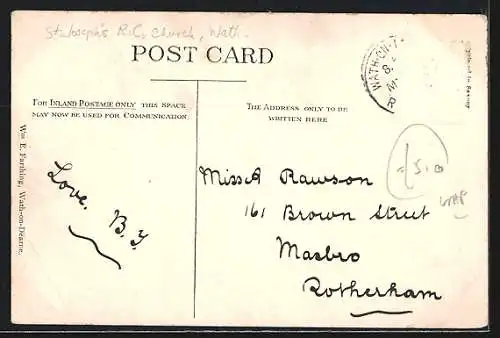 St. Joseph's R.C. Church, Wath.
POST CARD
FOR INLAND POSTAGE ONLY THIS SPACE
MAY NOW BE USED FOR COMMUNICATION.
THE ADDRESS ONLY TO BE
WRITTEN HERE
WATH-ON-
Wm E. Farthing, Wath-on-Dearne.
Love.
B.Y.
Miss A Rawson
161 Brown Street
Masbro
Rotherham
£5.0